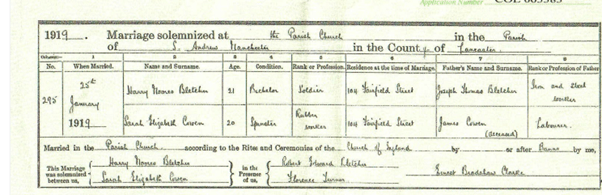 Application Number
1919. Marriage solemnized at the Parish Church in the Parish
of S. Andrew Manchester in the County of Lancaster
1 2 3 4 5 6 7 8
No. When Married. Name and Surname. Age. Condition. Rank or Profession. Residence at the time of Marriage. Father's Name and Surname. Rank or Profession of Father
295 25th January 1919
Harry Moores Bletcher 21 Bachelor Soldier 104 Fairfield Street Joseph Thomas Bletcher Iron and steel worker
Sarah Elizabeth Cowen 20 Spinster Rubber worker 104 Fairfield Street James Cowen (deceased) Labourer
Married in the Parish Church according to the Rites and Ceremonies of the Church of England by or after Banns by me,
This Marriage was solemnized between us, Harry Moores Bletcher
Sarah Elizabeth Cowen
in the Presence of us, Robert Edward Bletcher
Florence Turner
Ernest Bradshaw Clarke